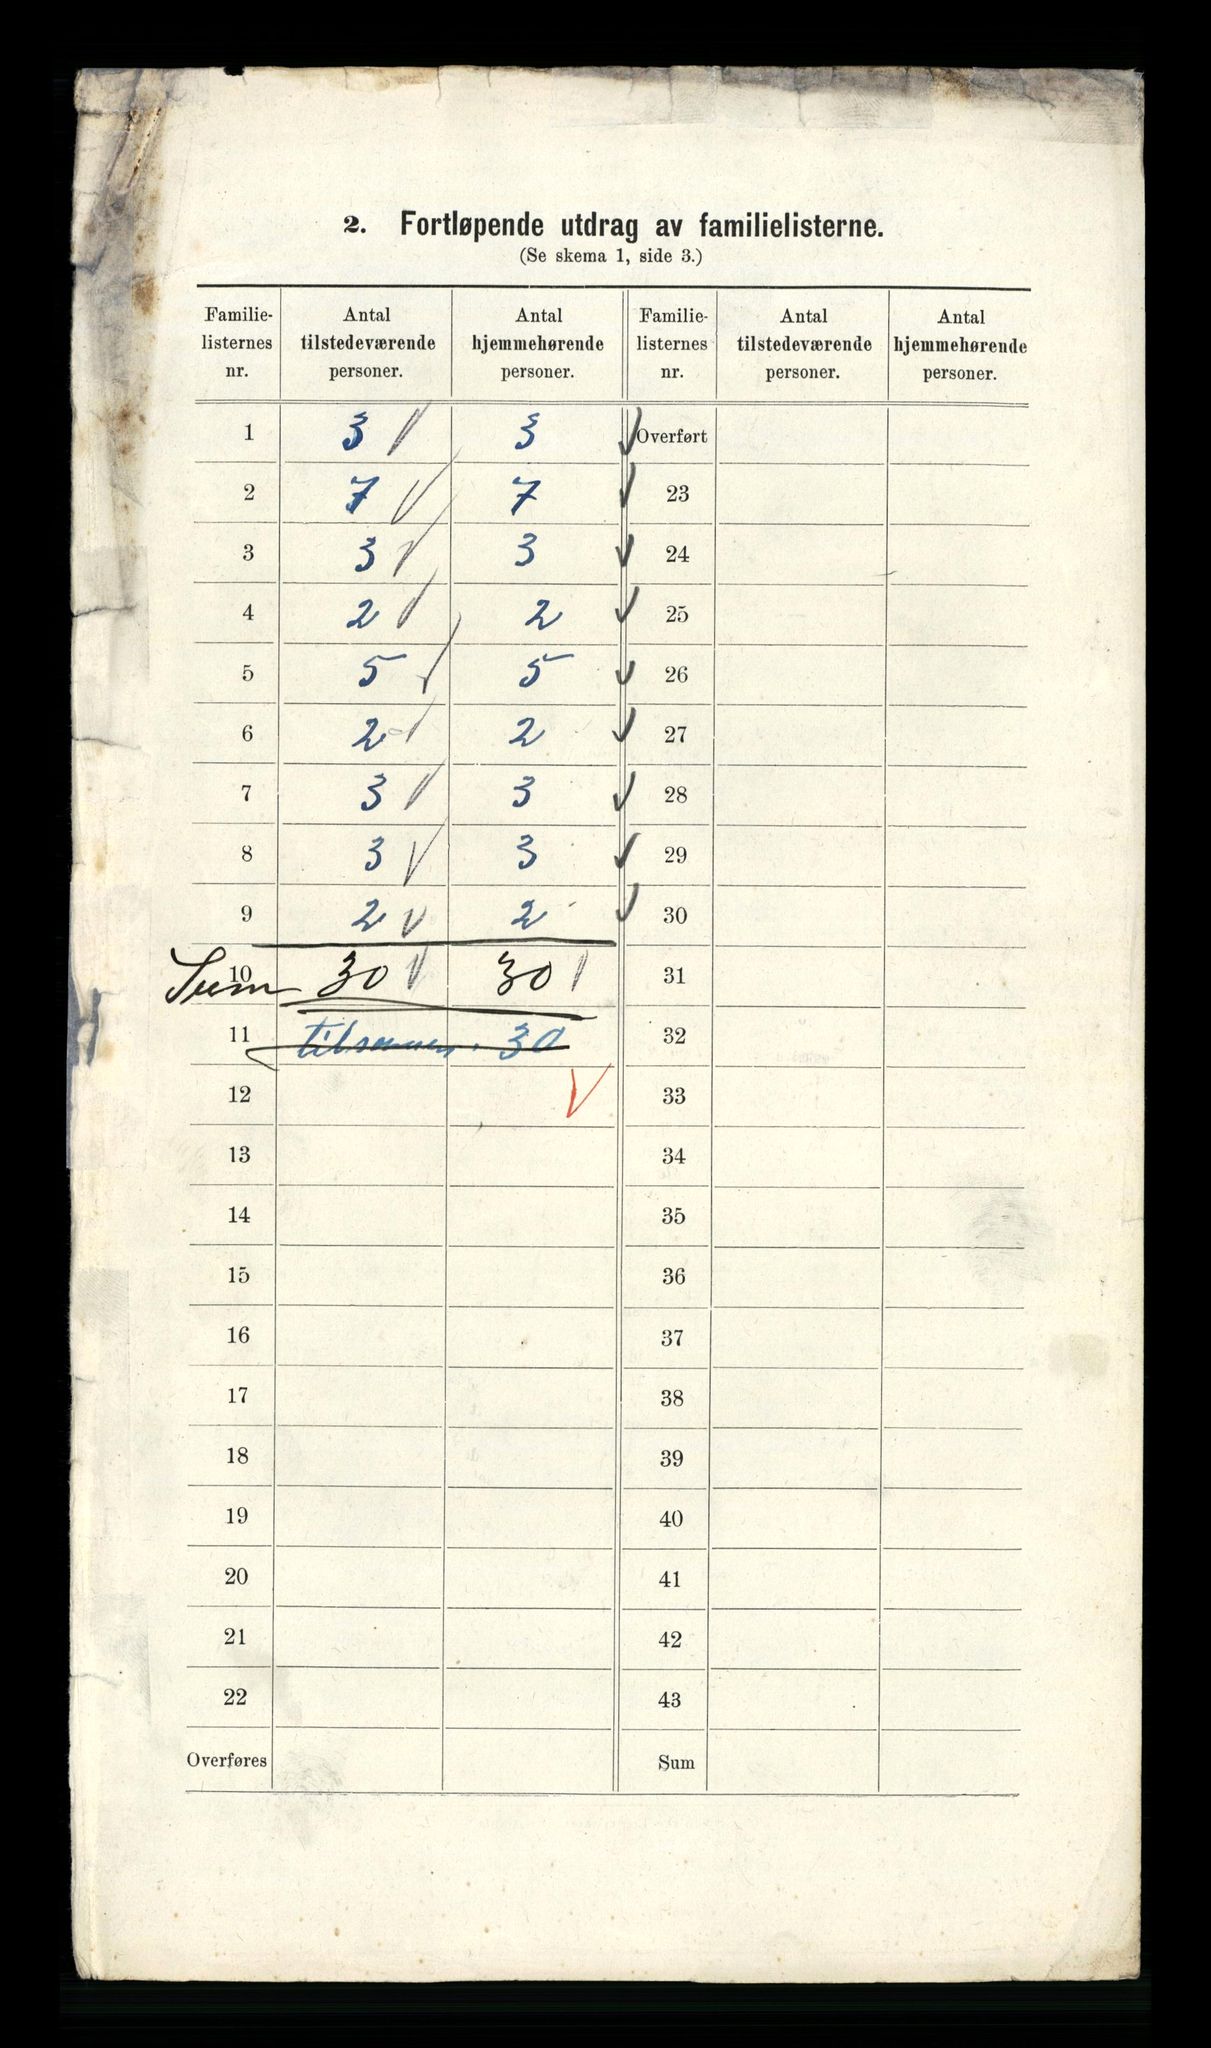 2. Fortløpende utdrag av familielisterne.
(Se skema 1, side 3.)
Familie-listernes nr. | Antal tilstedeværende personer. | Antal hjemmehørende personer. | Familie-listernes nr. | Antal tilstedeværende personer. | Antal hjemmehørende personer.
1 | 3 √ | 3 √ | Overført
2 | 7 √ | 7 √ | 23
3 | 3 √ | 3 √ | 24
4 | 2 √ | 2 √ | 25
5 | 5 √ | 5 √ | 26
6 | 2 √ | 2 √ | 27
7 | 3 √ | 3 √ | 28
8 | 3 √ | 3 √ | 29
9 | 2 √ | 2 √ | 30
10 Sum | 30 √ | 30 | 31
11 | tilsammen | 30 | 32
12 | | √ | 33
13 | | | 34
14 | | | 35
15 | | | 36
16 | | | 37
17 | | | 38
18 | | | 39
19 | | | 40
20 | | | 41
21 | | | 42
22 | | | 43
Overføres | | | Sum